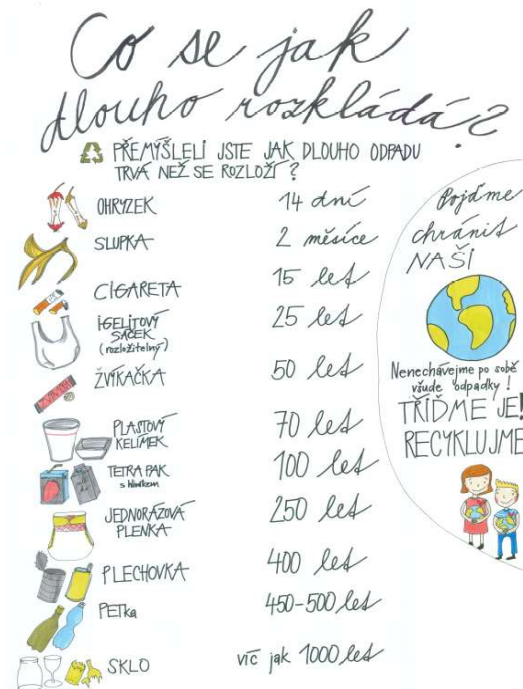 Co se jak
dlouho rozkládá?
PŘEMÝŠLELI JSTE JAK DLOUHO ODPADU
TRVÁ NEŽ SE ROZLOŽÍ?
OHRYZEK 14 dní
SLUPKA 2 měsíce
CIGARETA 15 let
IGELITOVÝ
SÁČEK
(rozložitelný) 25 let
ŽVÝKAČKA 50 let
PLASTOVÝ
KELÍMEK 70 let
TETRA PAK
s hliníkem 100 let
JEDNORÁZOVÁ
PLENKA 250 let
PLECHOVKA 400 let
PETka 450-500 let
SKLO víc jak 1000 let
Pojďme
chránit
NAŠI
Nenechávejme po sobě
všude odpadky!
TŘÍDME JE!
RECYKLUJME